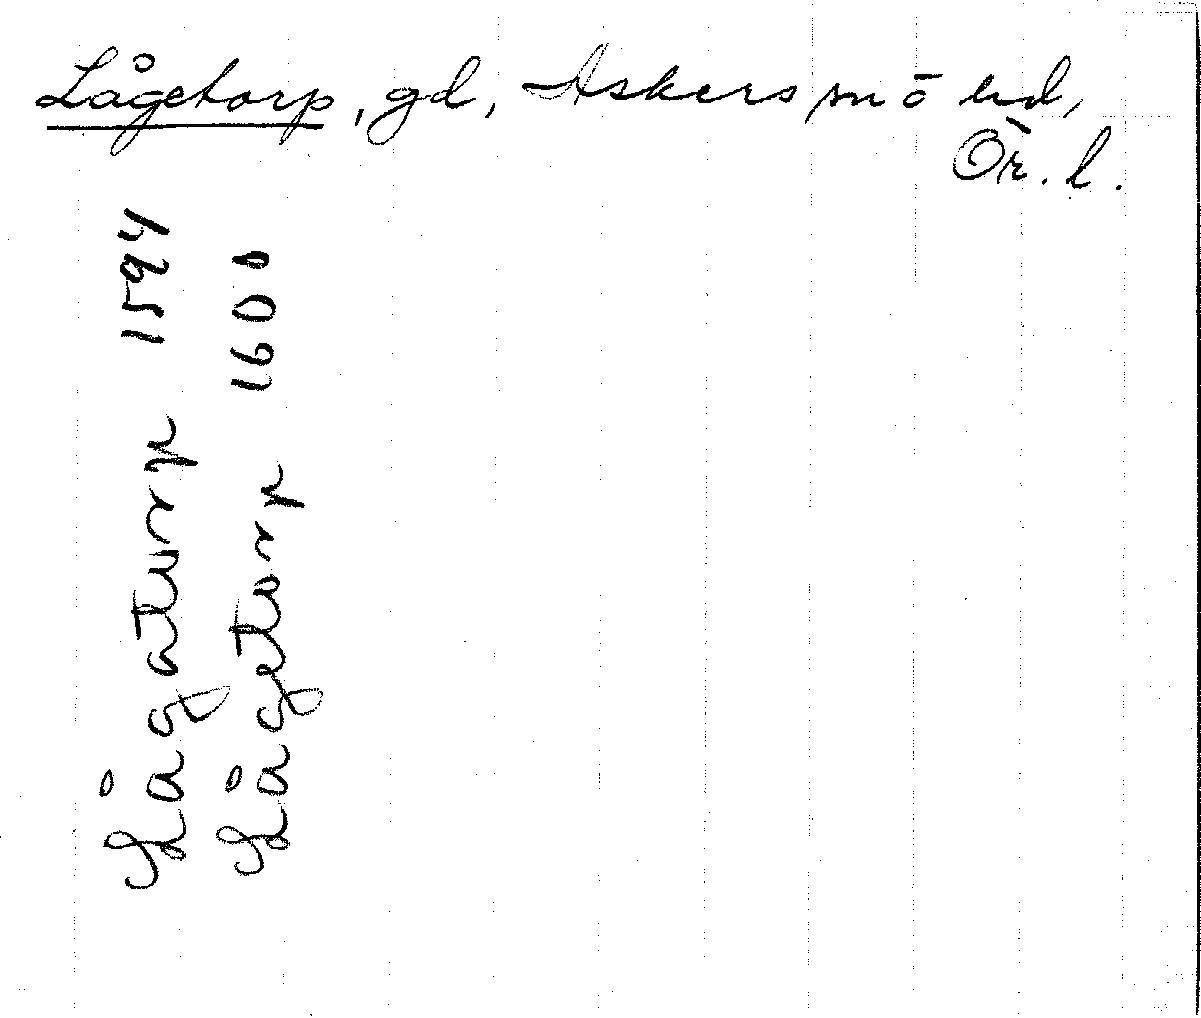 Lågetorp, gd, Askers sn ö hd,
Ör. l.
Lågaturp 1594
Lågetorp 1600